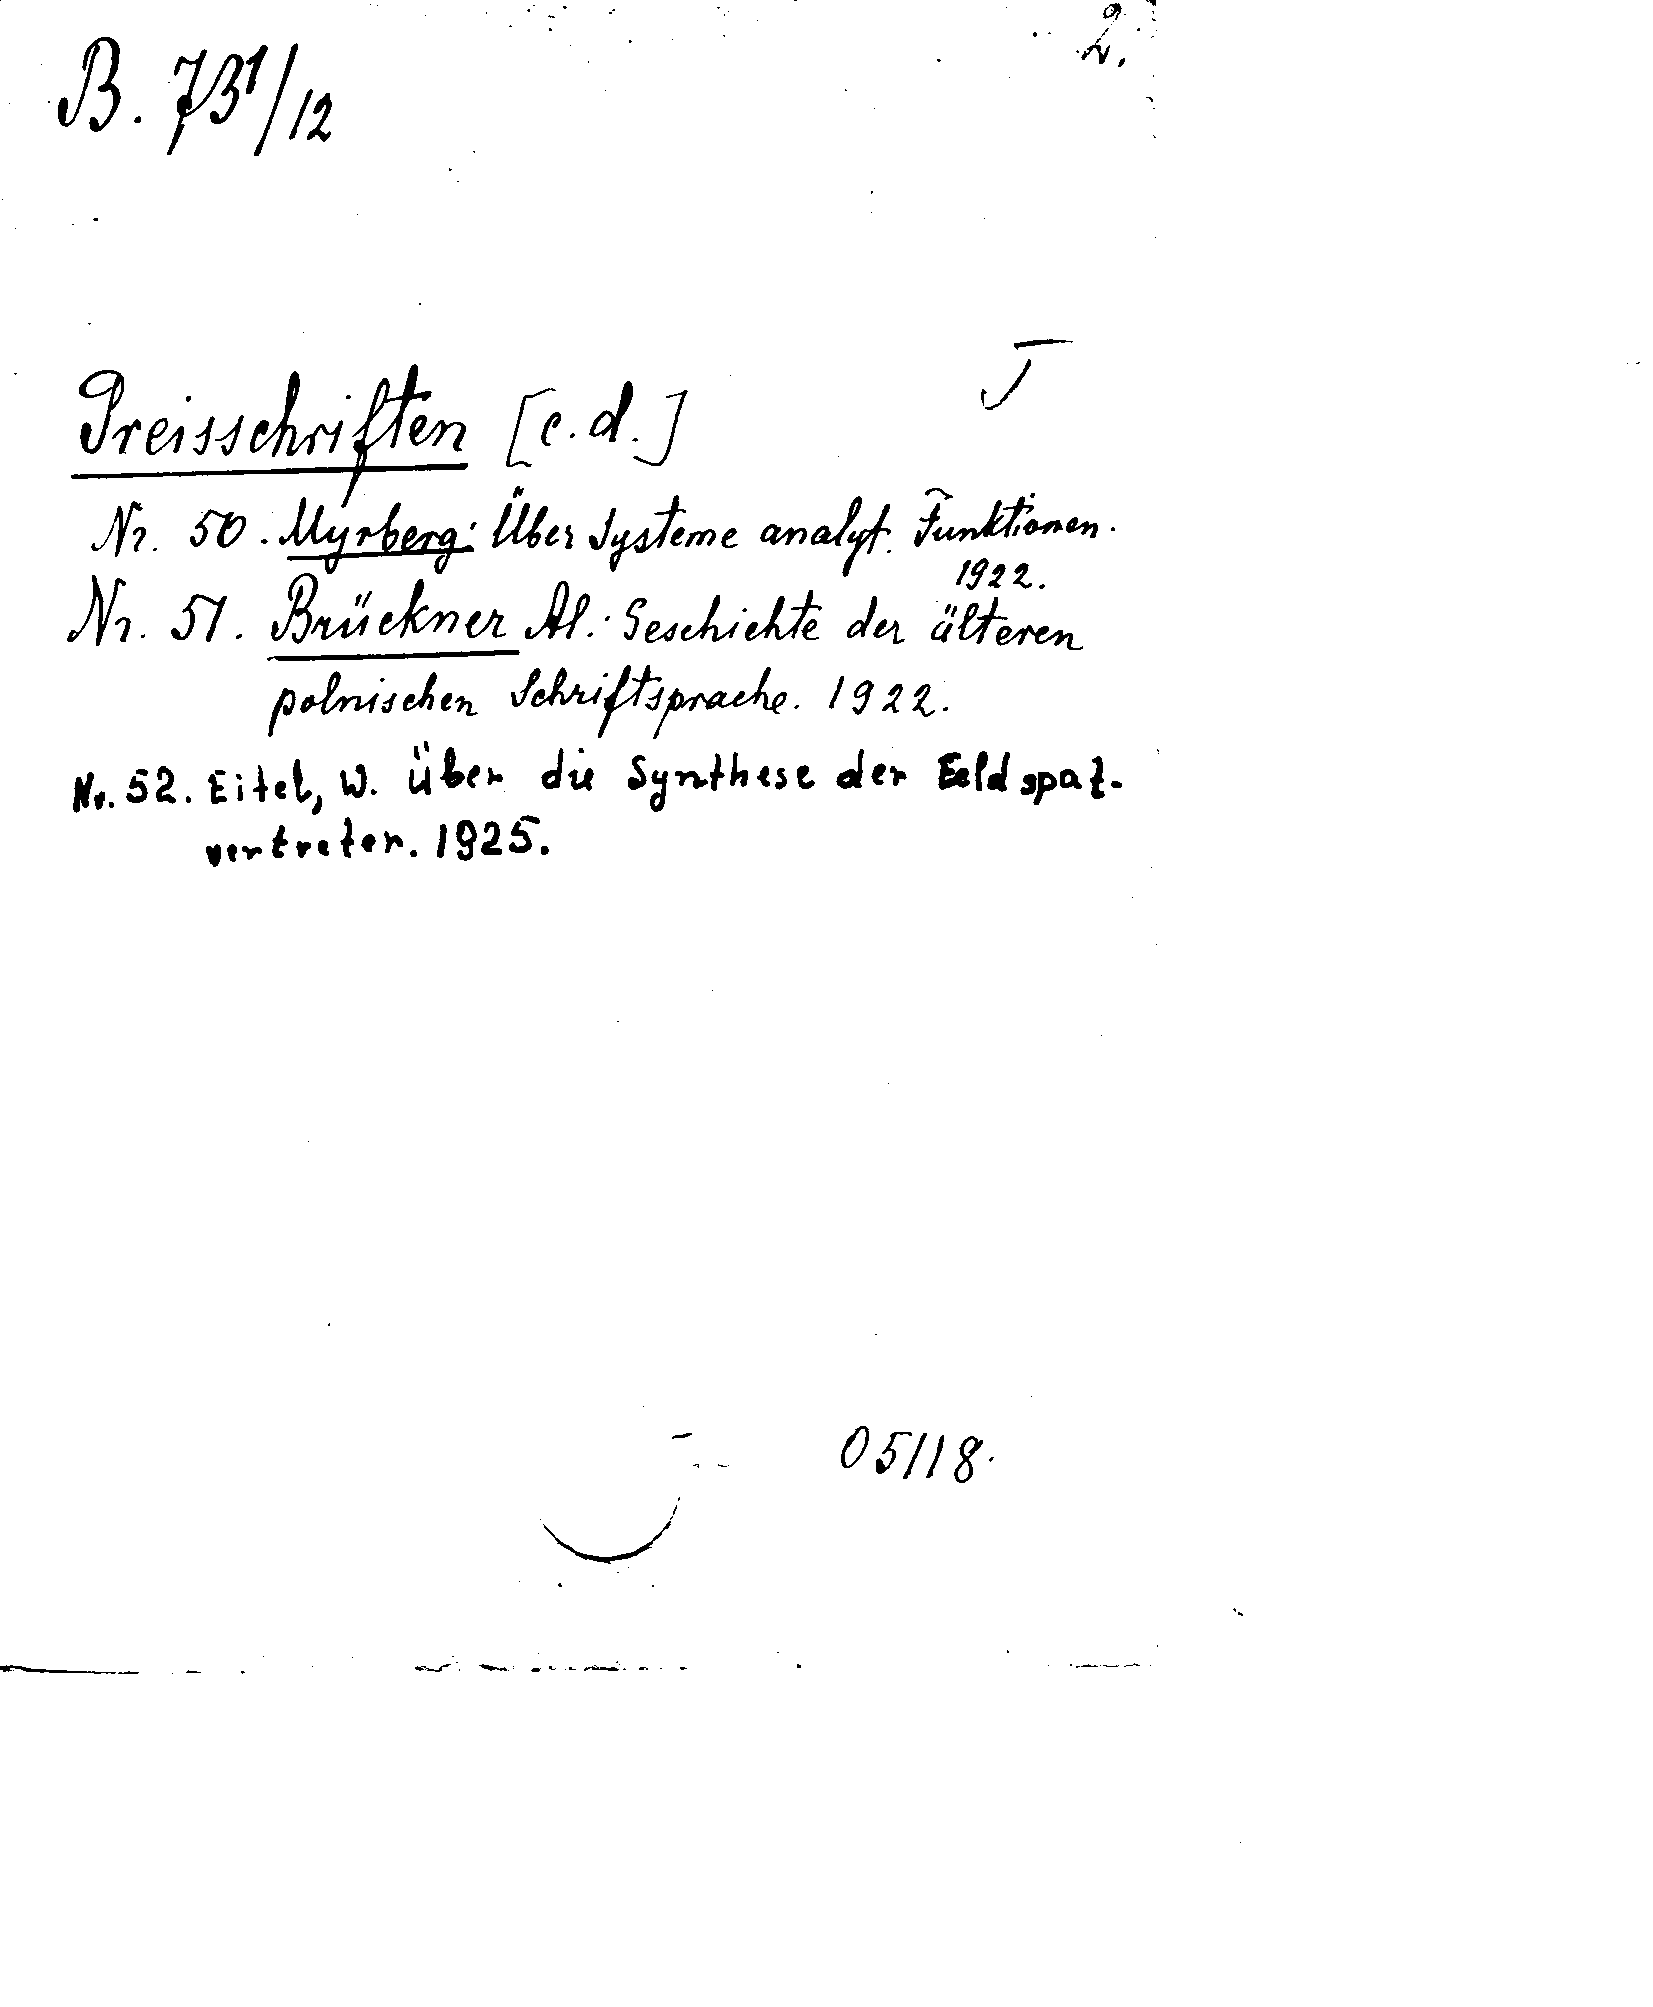 2.
B. 731/12
J
Preisschriften [c.d.]
Nr. 50. Myrberg: Über Systeme analyt. Funktionen.
1922.
Nr. 51. Brückner Al.: Geschichte der älteren
polnischen Schriftsprache. 1922.
Nr. 52. Eitel, W. Über die Synthese der Feldspat-
vertreter. 1925.
05118.